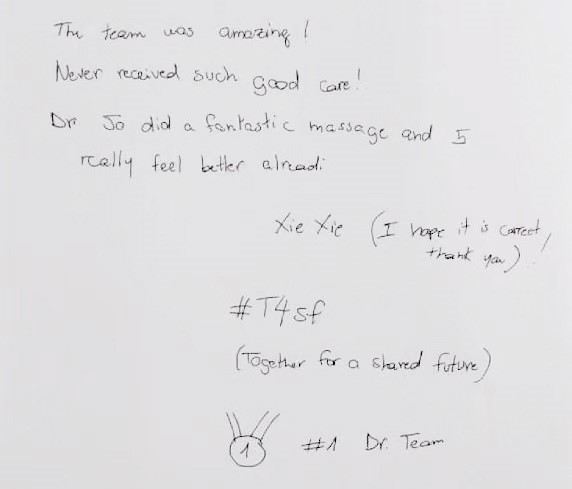 The team was amazing !
Never received such good care!
Dr Jo did a fantastic massage and 5
really feel better alreadi
Xie Xie (I hope it is correct,
thank you) !
#T4sf
(Together for a shared future)
1 #1 Dr. Team